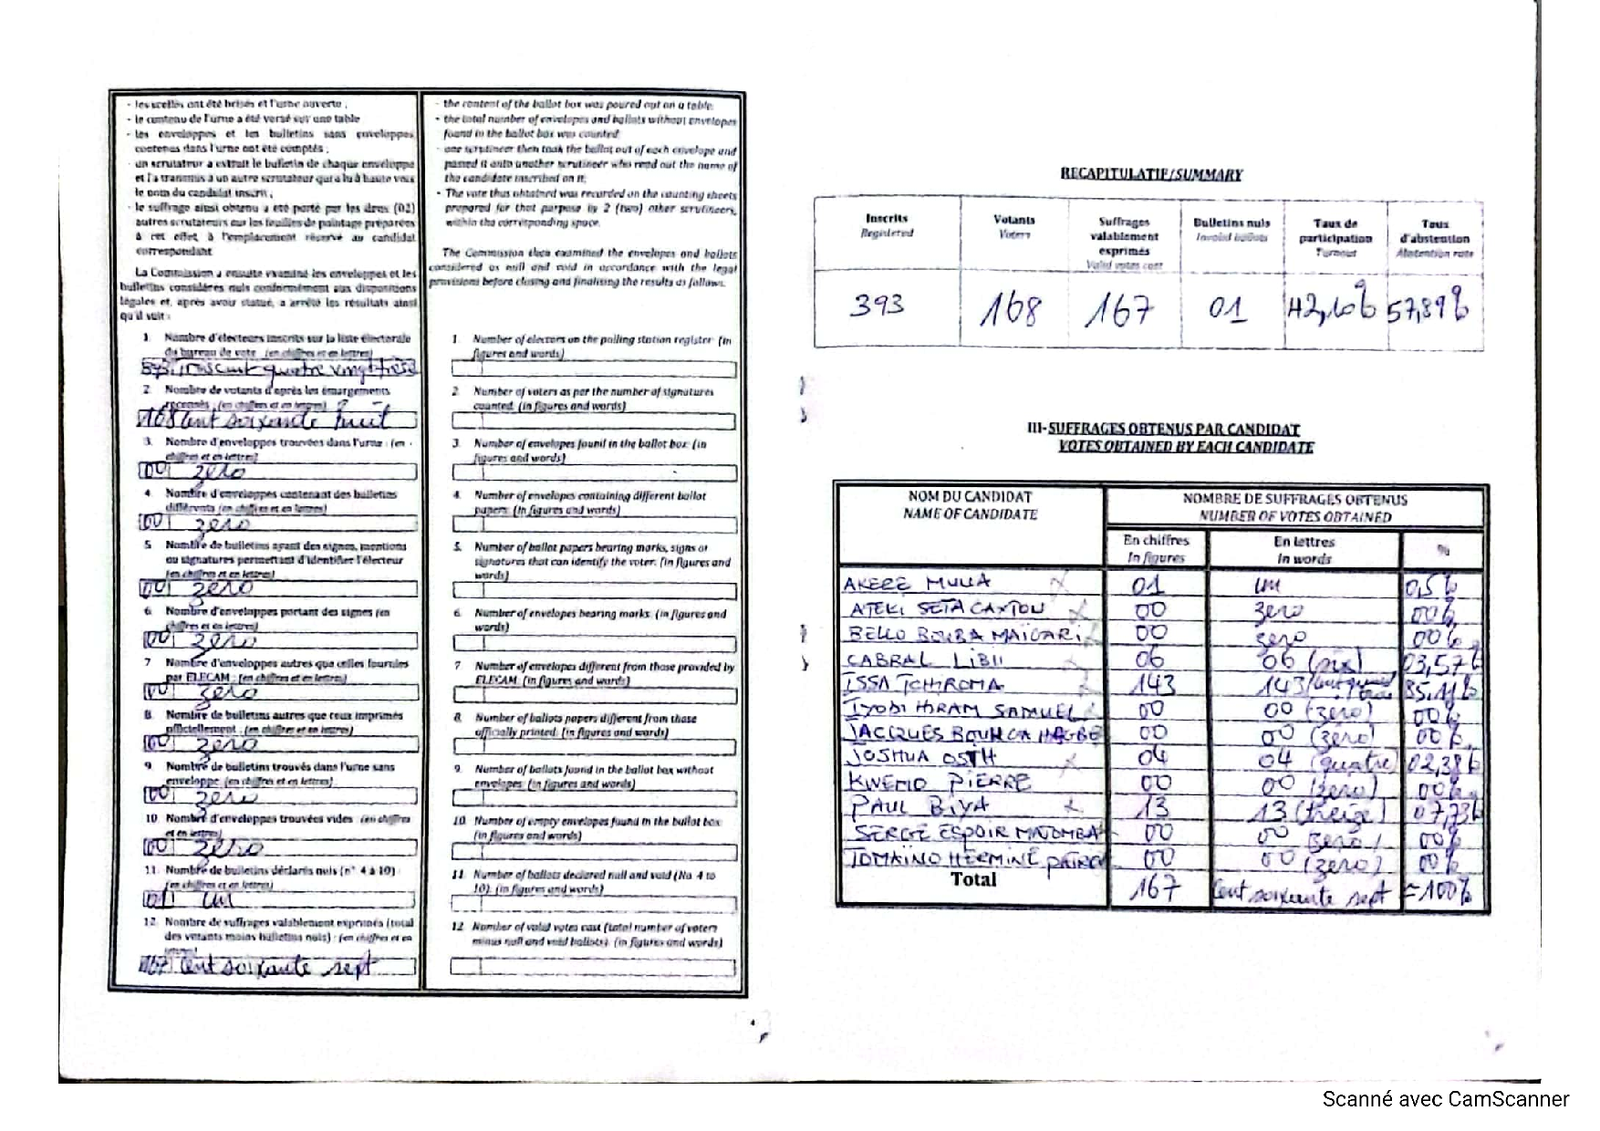 - les scellés ont été brisés et l'urne ouverte ;
- le contenu de l'urne a été versé sur une table
- les enveloppes et les bulletins sans enveloppes
contenus dans l'urne ont été comptés ;
- un scrutateur a extrait le bulletin de chaque enveloppe
et l'a transmis à un autre scrutateur qui a lu à haute voix
le nom du candidat inscrit ;
- le suffrage ainsi obtenu a été porté par les deux (02)
autres scrutateurs sur les feuilles de pointage préparées
à cet effet, à l'emplacement réservé au candidat
correspondant
La Commission a ensuite examiné les enveloppes et les
bulletins considérés nuls conformément aux dispositions
légales et, après avoir statué, a arrêté les résultats ainsi
qu'il suit :
1. Nombre d'électeurs inscrits sur la liste électorale
du bureau de vote (en chiffres et en lettres)
393 trois cent quatre vingt treize
2. Nombre de votants d'après les émargements
recensés (en chiffres et en lettres)
168 cent soixante huit
3. Nombre d'enveloppes trouvées dans l'urne : (en
chiffres et en lettres)
00 zero
4. Nombre d'enveloppes contenant des bulletins
différents (en chiffres et en lettres)
00 zero
5. Nombre de bulletins ayant des signes, mentions
ou signatures permettant d'identifier l'électeur
(en chiffres et en lettres)
00 zero
6. Nombre d'enveloppes portant des signes (en
chiffres et en lettres)
00 zero
7. Nombre d'enveloppes autres que celles fournies
par ELECAM : (en chiffres et en lettres)
00 zero
8. Nombre de bulletins autres que ceux imprimés
officiellement : (en chiffres et en lettres)
00 zero
9. Nombre de bulletins trouvés dans l'urne sans
enveloppe (en chiffres et en lettres)
00 zero
10. Nombre d'enveloppes trouvées vides (en chiffres
et en lettres)
00 zero
11. Nombre de bulletins déclarés nuls (n° 4 à 10)
(en chiffres et en lettres)
01 un
12. Nombre de suffrages valablement exprimés (total
des votants moins bulletins nuls) : (en chiffres et en
lettres)
167 cent soixante sept
- the content of the ballot box was poured out on a table
- the total number of envelopes and ballots without envelopes
found in the ballot box was counted
- one scrutineer then took the ballot out of each envelope and
passed it onto another scrutineer who read out the name of
the candidate inscribed on it;
- The vote thus obtained was recorded on the counting sheets
prepared for that purpose by 2 (two) other scrutineers,
within the corresponding space.
The Commission then examined the envelopes and ballots
considered as null and void in accordance with the legal
provisions before closing and finalising the results as follows.
1. Number of electors on the polling station register: (in
figures and words)
2. Number of voters as per the number of signatures
counted: (in figures and words)
3. Number of envelopes found in the ballot box: (in
figures and words)
4. Number of envelopes containing different ballot
papers: (In figures and words)
5. Number of ballot papers bearing marks, signs or
signatures that can identify the voter: (in figures and
words)
6. Number of envelopes bearing marks: (in figures and
words)
7 Number of envelopes different from those provided by
ELECAM: (in figures and words)
8. Number of ballots papers different from those
officially printed: (in figures and words)
9. Number of ballots found in the ballot box without
envelopes: (in figures and words)
10. Number of empty envelopes found in the ballot box
(in figures and words)
11. Number of ballots declared null and void (No 4 to
10): (in figures and words)
12 Number of valid votes cast (total number of voters
minus null and void ballots): (in figures and words)
RECAPITULATIF/SUMMARY
Inscrits Registered Votants Voters Suffrages valablement exprimés Valid votes cast Bulletins nuls Invalid ballots Taux de participation Turnout Taux d'abstention Abstention rate
393 168 167 01 42,10% 57,89%
III- SUFFRAGES OBTENUS PAR CANDIDAT
VOTES OBTAINED BY EACH CANDIDATE
NOM DU CANDIDAT NOMBRE DE SUFFRAGES OBTENUS
NAME OF CANDIDATE NUMBER OF VOTES OBTAINED
En chiffres En lettres %
In figures In words
AKERE MUNA 01 un 0,5%
ATEKI SETA CAXTON 00 zero 00%
BELLO BOUBA MAIGARI 00 zero 00%
CABRAL LIBII 06 06 (six) 03,57%
ISSA TCHIROMA 143 143 85,11%
IYODI HIRAM SAMUEL 00 00 (zero) 00%
JACQUES BOUNGA HAGBE 00 00 (zero) 00%
JOSHUA OSIH 04 04 (quatre) 02,38%
KWEMO PIERRE 00 00 (zero) 00%
PAUL BIYA 13 13 (treize) 07,73%
SERGE ESPOIR MATOMBA 00 00 (zero) 00%
TOMAINO HERMINE PATRI 00 00 (zero) 00%
Total 167 Cent soixante sept =100%
Scanné avec CamScanner